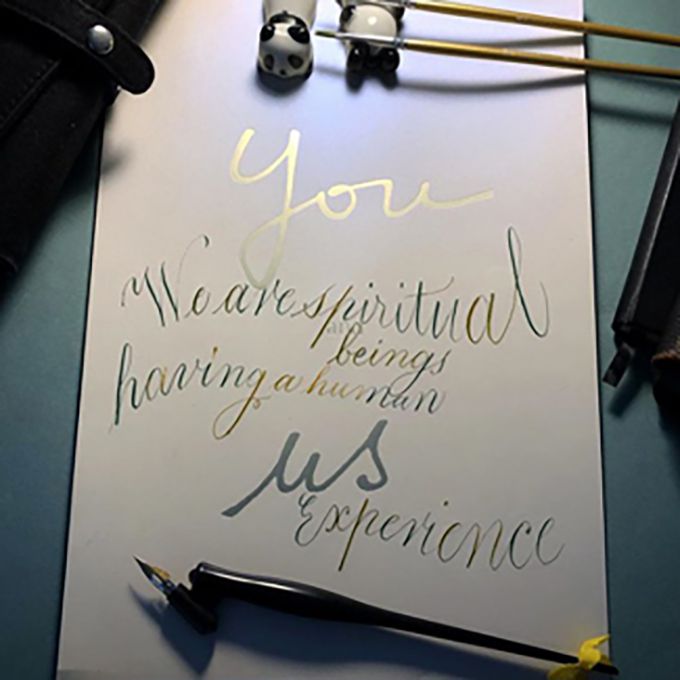 You
We are spiritual
and
beings
having a human
us
Experience